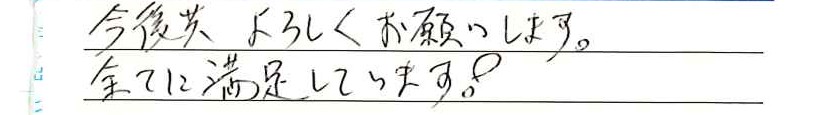 今後共 よろしくお願いします。
全てに満足しています。